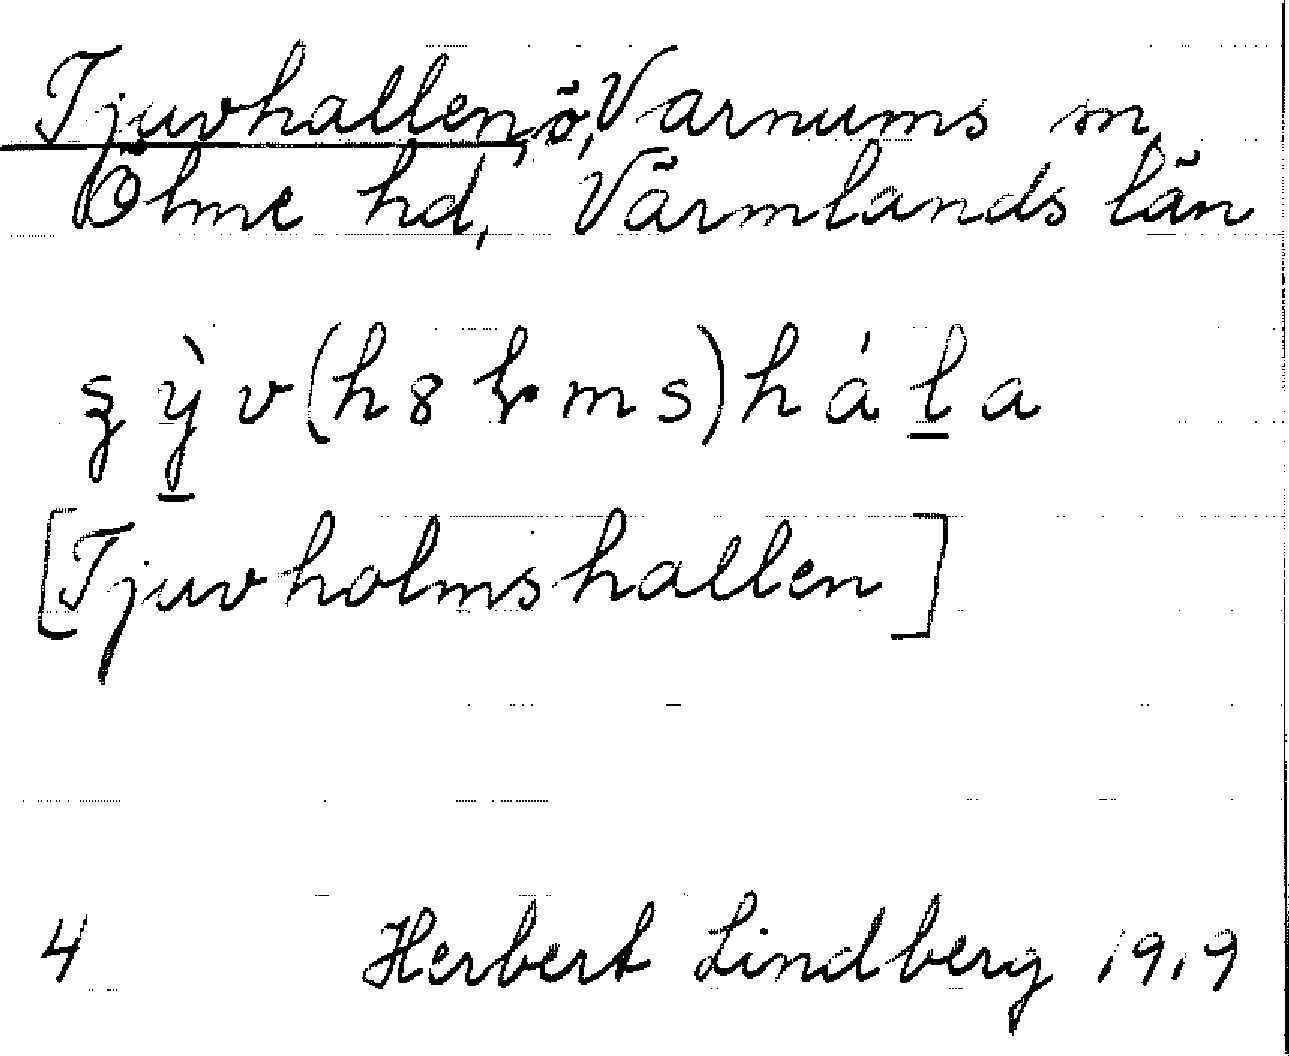 Tjuvhallen, ö, Varnums sn,
Ölme hd, Värmlands län
[Tjuvholmshallen]
4 Herbert Lindberg 1919